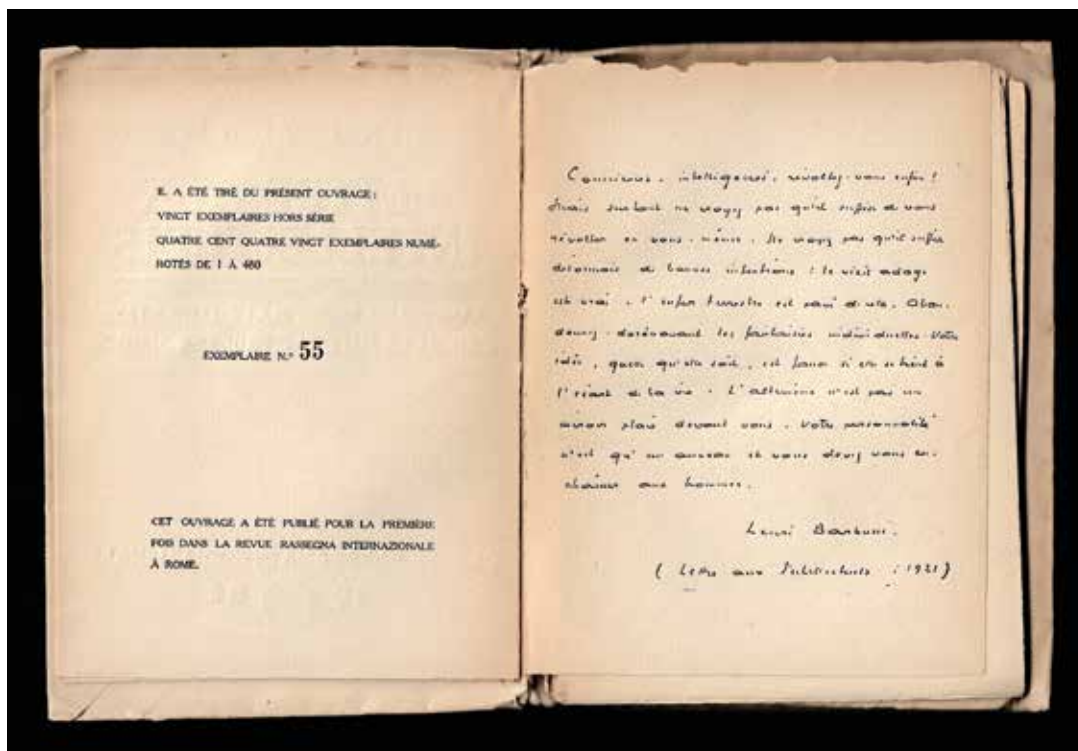 IL A ÉTÉ TIRÉ DU PRÉSENT OUVRAGE :
VINGT EXEMPLAIRES HORS SÉRIE
QUATRE CENT QUATRE VINGT EXEMPLAIRES NUMÉ-
ROTÉS DE 1 À 480
EXEMPLAIRE N.º 55
CET OUVRAGE A ÉTÉ PUBLIÉ POUR LA PREMIÈRE
FOIS DANS LA REVUE RASSEGNA INTERNAZIONALE
À ROME.
intelligences, révoltez-vous enfin !
Mais surtout ne croyez pas qu'il suffise de vous
révolter en vous-même. Ne croyez pas qu'il suffise
désormais de bonnes intentions : le vieil adage
est vrai, l'enfer terrestre est pavé de cela. Aban-
donnez dorénavant les fantaisies individuelles. Votre
idée, quelle qu'elle soit, est fausse si
de la vie. L'altruisme n'est pas un
devant vous. Votre personnalité
n'est qu'un anneau et vous devez vous en-
chaîner aux hommes.
Henri Barbusse.
( Lettre aux Intellectuels : 1921 )